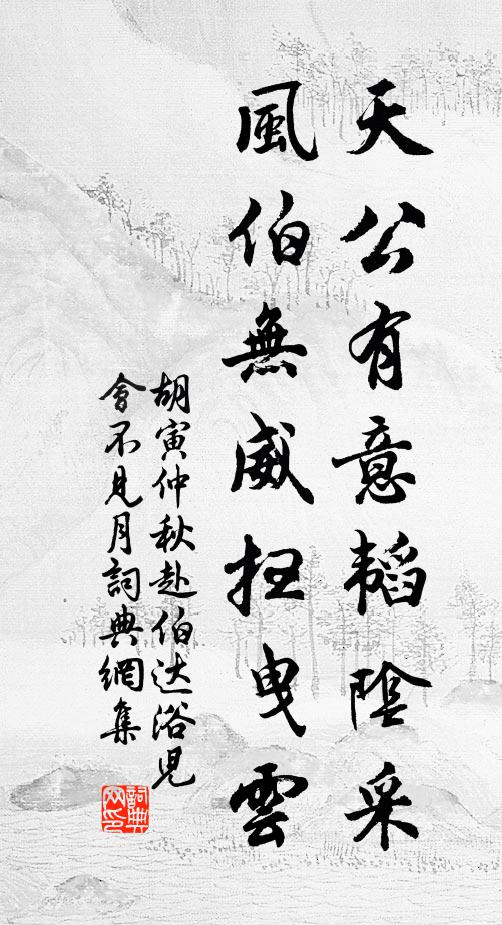 天公有意韬陰采
風伯無威扫曳雲
胡寅仲秋赴伯达浴児
會不見月詞典網集
詞典网印